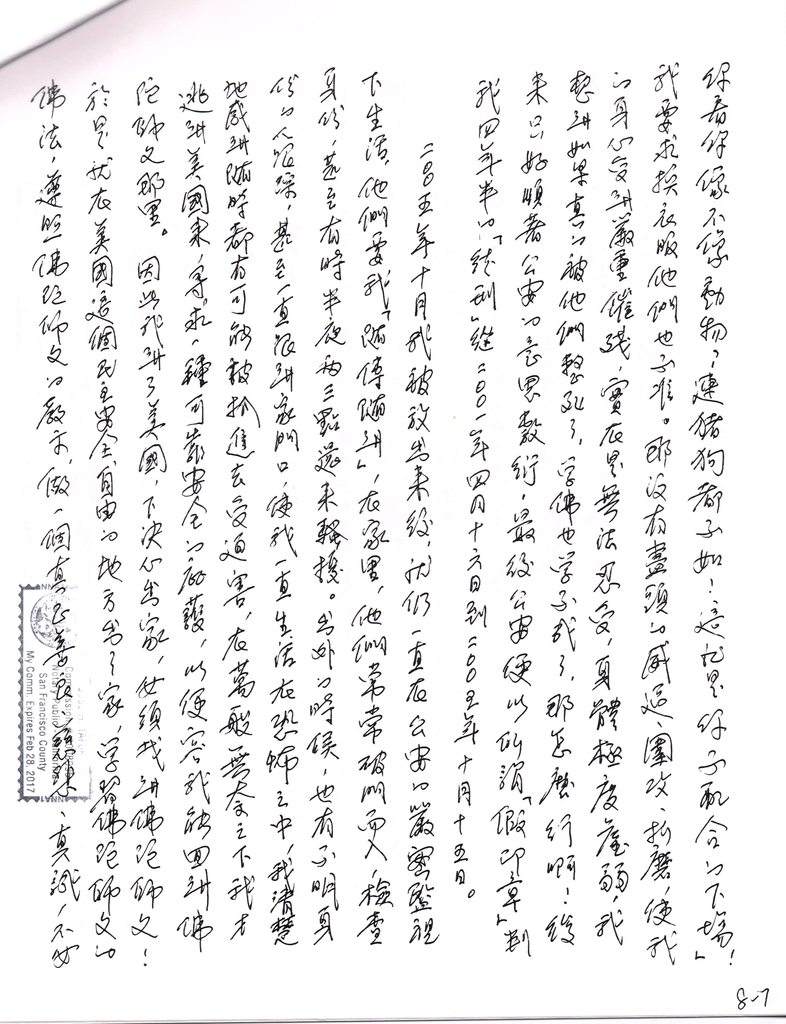 你看你像不像動物？連豬狗都不如！這就是你不配合的下場！」
我要求換衣服他們也不准。那沒有盡頭的威逼、圍攻、折磨，使我
的身心受到嚴重催殘，實在是無法忍受，身體極度虛弱，我
想到如果真的被他們整死了，學佛也学不成了，那怎麼行啊！後
來只好順着公安的意思敷衍，最後公安便以所謂「假印章」判
我四年半的「徒刑」從二〇〇一年四月十六日到二〇〇五年十月十五日。
二〇〇五年十月我被放出來後，我仍一直在公安的嚴密監視
下生活，他們要我「隨傳隨到」，在家里，他們常常破門而入，檢查
身份，甚至有時半夜兩三點還來騷擾。出外的時候，也有不明身
份的人跟踪，甚至一直跟到家門口，使我一直生活在恐怖之中，我清楚
地感到隨時都有可能被抓進去受迫害，在萬般無奈之下我才
逃到美國來，尋求一種可靠安全的庇護，以便容我能回到佛
陀師父那里。因此我到了美國，下決心出家，必須找到佛陀師父！
於是我在美國這個民主安全自由的地方出了家，学習佛陀師父的
佛法，遵照佛陀師父的教示，做一個真正善良、、真誠，不妄
Notary Public
San Francisco County
My Comm. Expires Feb 28, 2017
8-7